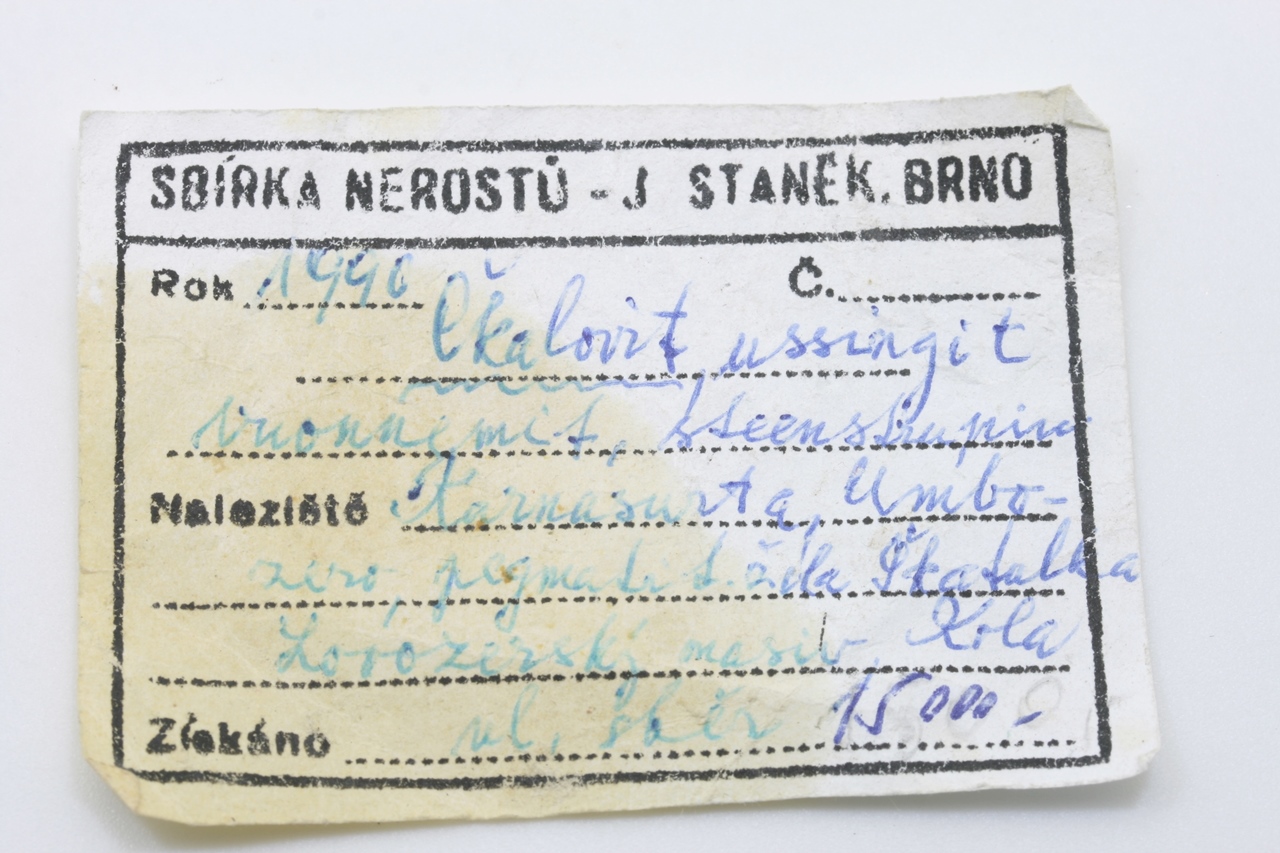 SBÍRKA NEROSTŮ - J STANĚK, BRNO
Rok 1990 Č.
Čkalovit, ussingit
vuonnemit, steenstrupin
Naleziště Karnasurta, Umbo-
zero, pegmatit. žíla Škatulka
Lovozerský masiv, Kola
Získáno vl. sběr 15000.-